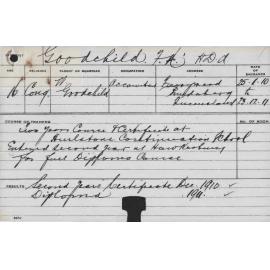 Goodchild, F.A; H.D.A
AGE RELIGION PARENT OR GUARDIAN OCCUPATION ADDRESS DATE OF ENTRANCE
16 Cong W Goodchild Accountant 25-8-10
to
Queensland 23-12-11
COURSE OR TRAINING
Two Years Course & Certificate at
Hurlstone Continuation School
Entered Second year at Hawkesbury
for full Diploma Course
RESULTS Second Years Certificate Dec. 1910 ✓
Diploma 1911 ✓